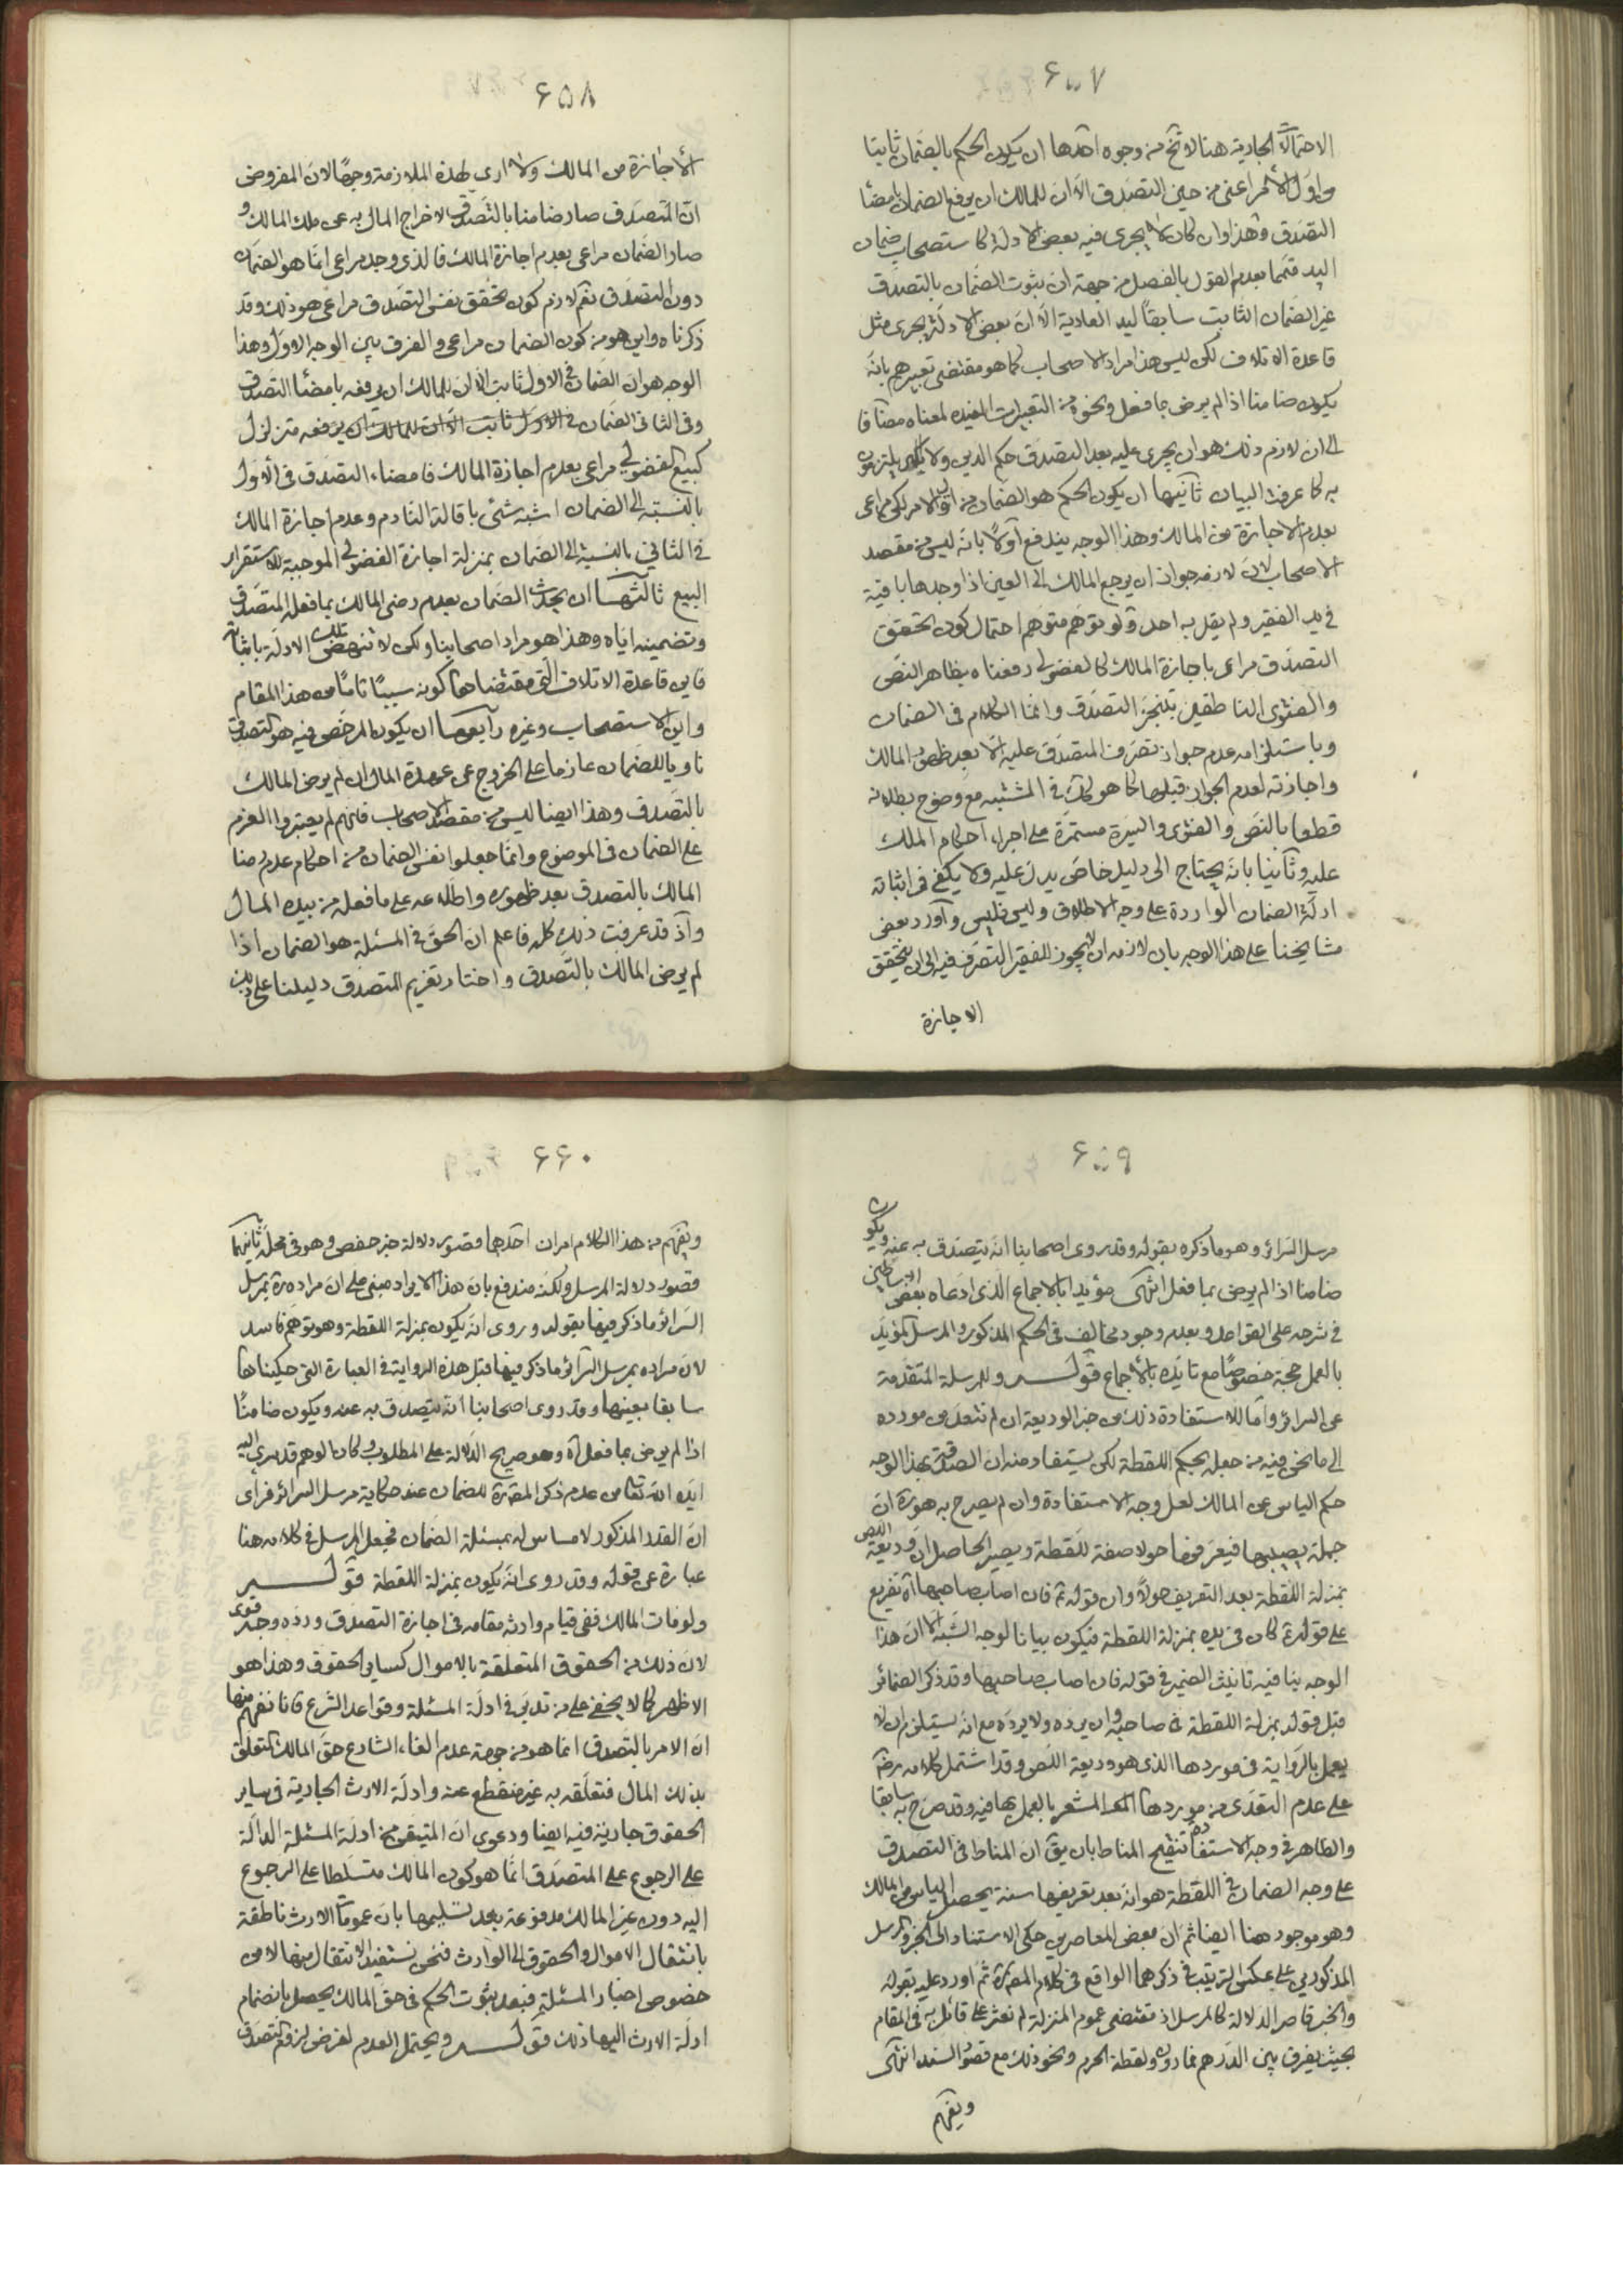 ۶۵۷
الاحتمالات الجارية هنا لا تخ من وجوه احدها ان يكون الحكم بالضمان ثابتا
من اول الامر اعنى من حين التصدق الا ان للمالك ان يرفع الضمان بامضا
التصدق وهذا وان كان لا يجرى فيه بعض الادلة كاستصحاب ضمان
اليد متمما بعدم القول بالفصل من جهة ان ثبوت الضمان بالتصدق
غير الضمان الثابت سابقا ليد العادية الا ان بعض الادلة يجرى مثل
قاعدة الاتلاف لكن ليس هذا مراد الاصحاب كما هو مقتضى تعبيرهم بانه
يكون ضامنا اذا لم يرض بما فعل ونحوه من التعبيرات المفيده لمعناه مضافا
الى ان لازم ذلك هو ان يجرى عليه بعد التصدق حكم الدين ولا يلتزمون
به كما عرفت البيان ثانيها ان يكون الحكم هو الضمان من اول الامر لكن مراعى
بعدم الاجازة من المالك وهذا الوجه يندفع اولا بانه ليس من مقصد
الاصحاب لان لازمه جواز ان يرجع المالك الى العين اذا وجدها باقية
فى يد الفقير ولم يقل به احد ولو توهم متوهم احتمال كون تحقق
التصدق مراعى باجازة المالك كالفضولى دفعناه بظاهر النص
والفتوى الناطقين بتنجز التصدق وانما الكلام فى الضمان
وباستلزامه عدم جواز تصرف المتصدق عليه الا بعد ظهور المالك
واجازته لعدم الجواز قبلهما كما هو كك فى المشتبه مع وضوح بطلانه
قطعا بالنص والفتوى والسيرة مستمرة على اجراء احكام الملك
عليه وثانيا بانه يحتاج الى دليل خاص يدل عليه ولا يكفى فى اثباته
ادلة الضمان الواردة على وجه الاطلاق وليس فليس واورد بعض
مشايخنا على هذا الوجه بان لازمه ان لا يجوز للفقير التصرف فيه الى ان يتحقق
الاجازة
۶۵۸
الاجازة من المالك ولا ارى لهذه الملازمة وجها لان المفروض
ان المتصدق صار ضامنا بالتصدق لاخراج المال به عن ملك المالك و
صار الضمان مراعى بعدم اجازة المالك فالذى وجد مراعى انما هو الضمان
دون التصدق نعم لازم كون تحقق نفس التصدق مراعى هو ذلك وقد
ذكرناه واين هو من كون الضمان مراعى والفرق بين الوجه الاول وهذا
الوجه هو ان الضمان فى الاول ثابت الا ان للمالك ان يرفعه بامضاء التصدق
وفى الثانى الضمان فى الاول ثابت الا ان للمالك ان يرفعه متزلزل
كبيع الفضولى مراعى بعدم اجازة المالك فامضاء التصدق فى الاول
بالنسبة الى الضمان اشبه شئ باقالة النادم وعدم اجازة المالك
فى الثانى بالنسبة الى الضمان بمنزلة اجازة الفضولى الموجبة للاستقرار
البيع ثالثها ان يحدث الضمان بعدم رضى المالك بما فعله المتصدق
وتضمينه اياه وهذا هو مراد اصحابنا ولكن لا تنهض تلك الادلة باثباته
فاين قاعدة الاتلاف التى مقتضاها كونه سببا تاما من هذا المقام
واين الاستصحاب وغيره رابعها ان يكون المرخص فيه هو التصدق
ناويا للضمان عازما على الخروج عن عهدة المال ان لم يرض المالك
بالتصدق وهذا ايضا ليس من مقصد الاصحاب فانهم لم يعتبروا العزم
على الضمان فى الموضوع وانما جعلوا نفس الضمان من احكام عدم رضا
المالك بالتصدق بعد ظهوره واطلاعه على ما فعله من بيده المال
واذ قد عرفت ذلك كله فاعلم ان الحق فى المسئلة هو الضمان اذا
لم يرض المالك بالتصدق واختار تغريم المتصدق دليلنا على ذلك
۶۵۹
مرسل السرائر وهو ما ذكره بقوله وقد روى اصحابنا انه يتصدق به عنه ويكون
ضامنا اذا لم يرض بما فعل انتهى مؤيدا بالاجماع الذى ادعاه بعض الاساطين
فى شرحه على القواعد وبعدم وجود مخالف فى الحكم المذكور والمرسل المؤيد
بالعمل حجة خصوصا مع تايده بالاجماع قوله وللمرسلة المتقدمة
عن السرائر واما الاستفادة ذلك من خبر الوديعة ان لم نتعد من مورده
الى ما نحن فيه من جعله بحكم اللقطة لكن يستفاد منه ان الصدقة بهذا الوجه
حكم الياس عن المالك لعل وجه الاستفادة وان لم يصرح به هو ان
جملة يصيبها فيعرفها حولا صفة للقطة ويصير الحاصل ان وديعة اللص
بمنزلة اللقطة بعد التعريف حولا وان قوله ع فان اصاب صاحبها اه تفريع
على قوله ع كان فى يده بمنزلة اللقطة فيكون بيانا لوجه الشبه الا ان هذا
الوجه ينافيه تانيث الضمير فى قوله فان اصاب صاحبها وقد ذكر الضمائر
قبل قوله بمنزلة اللقطة فى صاحبه وان يرده ولا يرده مع انه يستلزم ان لا
يعمل بالرواية فى موردها الذى هو وديعة اللص وقد اشتمل كلامه ره
على عدم التعدى من موردها المشعر بالعمل بها فيه وقد صرح به سابقا
والظاهر فى وجه الاستفادة تنقيح المناط بان يق ان المناط فى التصدق
على وجه الضمان فى اللقطة هو انه بعد تعريفها سنة يحصل الياس من المالك
وهو موجود هنا ايضا ثم ان بعض المعاصرين حكى الاستناد الى الخبر والمرسل
المذكورين على عكس الترتيب فى ذكرهما الواقع فى كلام المص ره ثم اورد عليه بقوله
والخبر قاصر الدلالة كالمرسل اذ مقتضى عموم المنزلة لم نعثر على قائل به فى المقام
بحيث يفرق بين الدرهم فما دونه ولقطة الحرم ونحو ذلك مع قصور السند انتهى
ويفهم
۶۶۰
ويفهم من هذا الكلام امران احدهما قصور دلالة خبر حفص وهو فى محله ثانيهما
قصور دلالة المرسل ولكنه مندفع بان هذا الايراد مبنى على ان مراده ره بمرسل
السرائر ما ذكر فيها بقوله وروى انه يكون بمنزلة اللقطة وهو توهم فاسد
لان مراده بمرسل السرائر ما ذكر فيها قبل هذه الرواية فى العبارة التى حكيناها
سابقا بعينها وقد روى اصحابنا انه يتصدق به عنه ويكون ضامنا
اذا لم يرض بما فعل اه وهو صريح الدلالة على المطلوب وكان الوهم قد سرى اليه
ايده الله تعالى من عدم ذكر المص ره للضمان عند حكاية مرسل السرائر فراى
ان القدر المذكور لا مساس له بمسئلة الضمان فجعل المرسل فى كلامه هنا
عبارة عن قوله وقد روى انه يكون بمنزلة اللقطة قوله
ولو مات المالك ففى قيام وارثه مقامه فى اجازة التصدق ورده وجه قوى
لان ذلك من الحقوق المتعلقة بالاموال كساير الحقوق وهذا هو
الاظهر كما لا يخفى على من تدبر فى ادلة المسئلة وقواعد الشرع فانا نفهم منها
ان الامر بالتصدق انما هو من جهة عدم الغاء الشارع حق المالك المتعلق
بذلك المال فتعلقه به غير منقطع عنه وادلة الارث الجارية فى ساير
الحقوق جارية فيه ايضا ودعوى ان المتيقن من ادلة المسئلة الدالة
على الرجوع على المتصدق انما هو كون المالك متسلطا على الرجوع
اليه دون غير المالك مدفوعة بعد تسليمها بان عمومات الارث ناطقة
بانتقال الاموال والحقوق الى الوارث فنحن نستفيد الانتقال منها لا من
خصوص اخبار المسئلة فبعد ثبوت الحكم فى حق المالك يحصل بانضمام
ادلة الارث اليها ذلك قوله ويحتمل العدم لفرض لزوم التصدق